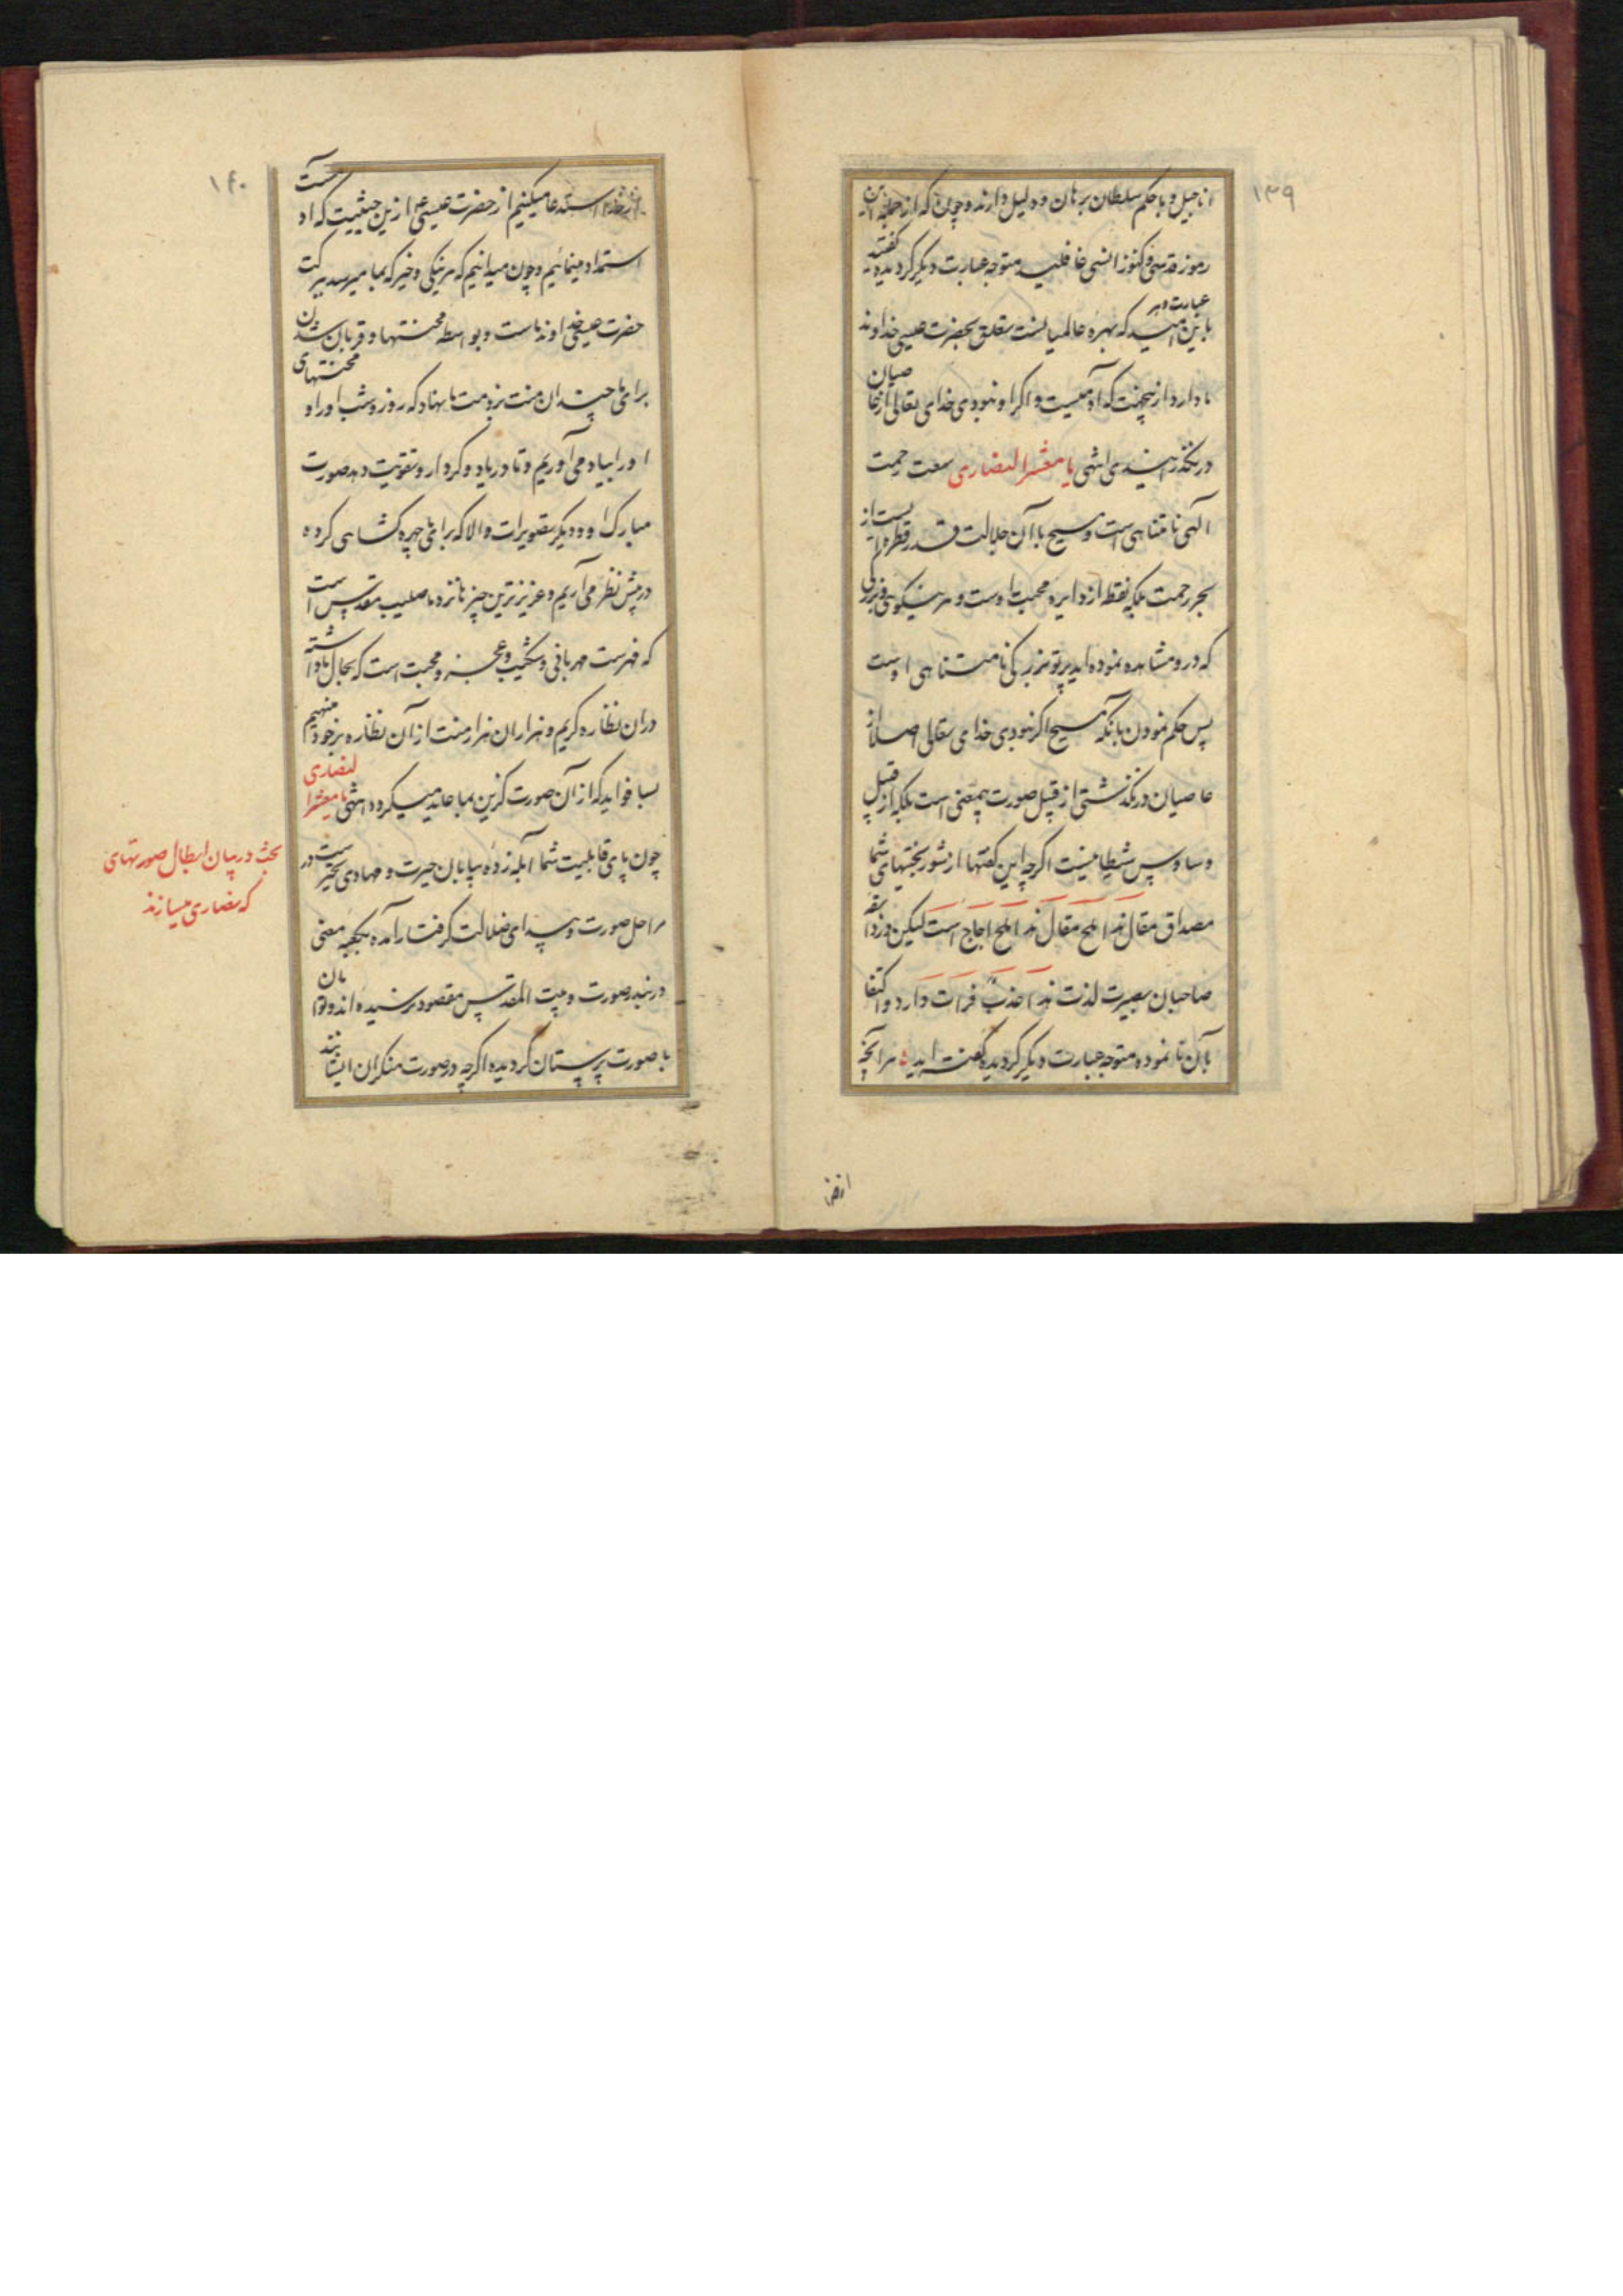 ۱۳۹
اناجیل و با حکم سلطان برهان و دلیل دارند و چون که از جمله این
رموز قدسی و کنوز انسی غافلید متوجه عبارت دیگر گردیده گفته‌
باین امید که بهره عالمیانست متعلق بحضرت عیسی خداوند
ما دارد از بجهت که آدمیست و اگر او نبودی خدای تعالی از عاصیان
در نگذرانیدی انتهی یا معشر النصاری سعت رحمت
الهی نامتناهی است و مسیح با آن جلالت قدر قطره ایست از
بحر رحمت بلکه نقطه از دایره محبت اوست و هر نیکویی و بزرگی
که در و مشاهده نموده‌اید پرتو بزرگی نامتناهی اوست
پس حکم نمودن بانکه مسیح اگر نبودی خدای تعالی اصلا از
عاصیان در نگذشتی از قبیل صورت بیمعنی است بلکه از قبیل
وساوس شیطانیست اگرچه این گفتها از شوربختیهای شما
مصداق مقال هذا ملح مقال هذا ملح اجاج است لیکن در ذائقه
صاحبان بصیرت لذت هذا عذب فرات دارد و اکتفا
بآن نا نموده متوجه عبارت دیگر گردیده گفته‌اید هر آنچه
از خدا
۱۴۰
از خدا استدعا میکنیم از حضرت عیسی ازین حیثیت که او آدمیست
استمداد مینمائیم و چون میدانیم که هر نیکی و خیر که بما میرسد ببرکت
حضرت عیسی خداوند ماست و بواسطه محنتها و قربان شدن
برای ما چندان منت بر ذمت ما نهاد که روز و شب او را و محنتهای
او را بیاد می‌آوریم و تا در یاد و کردار و تقویت دهد صورت
مبارک او و دیگر تصویرات والا که برای ما چهره گشاهی کرده
در پیش نظر می‌آریم و عزیزترین چیز ها نزد ما صلیب مقدس است
که فهرست مهربانی و شکیب و عجز و محبت است که بحال ما داشته
در ان نظاره کریم و هزاران هزار منت از آن نظاره بر خود منهیم
بسا فواید که از آن صورت گزین بما عاید میگردد انتهی یا معشر النصاری
چون پای قابلیت شما آبله زده بیابان حیرت و مهادی تحیر است در
مراحل صورت و بیدای ضلالت گرفتار آمده بکعبه معنی
در نبد صورت و بیت المقدس مقصود نرسیده‌اند و توامان
با صورت پرستان گردیده اگرچه در صورت منکران ایشانند
بحث در بیان ابطال صورتهای
که نصاری میسازند